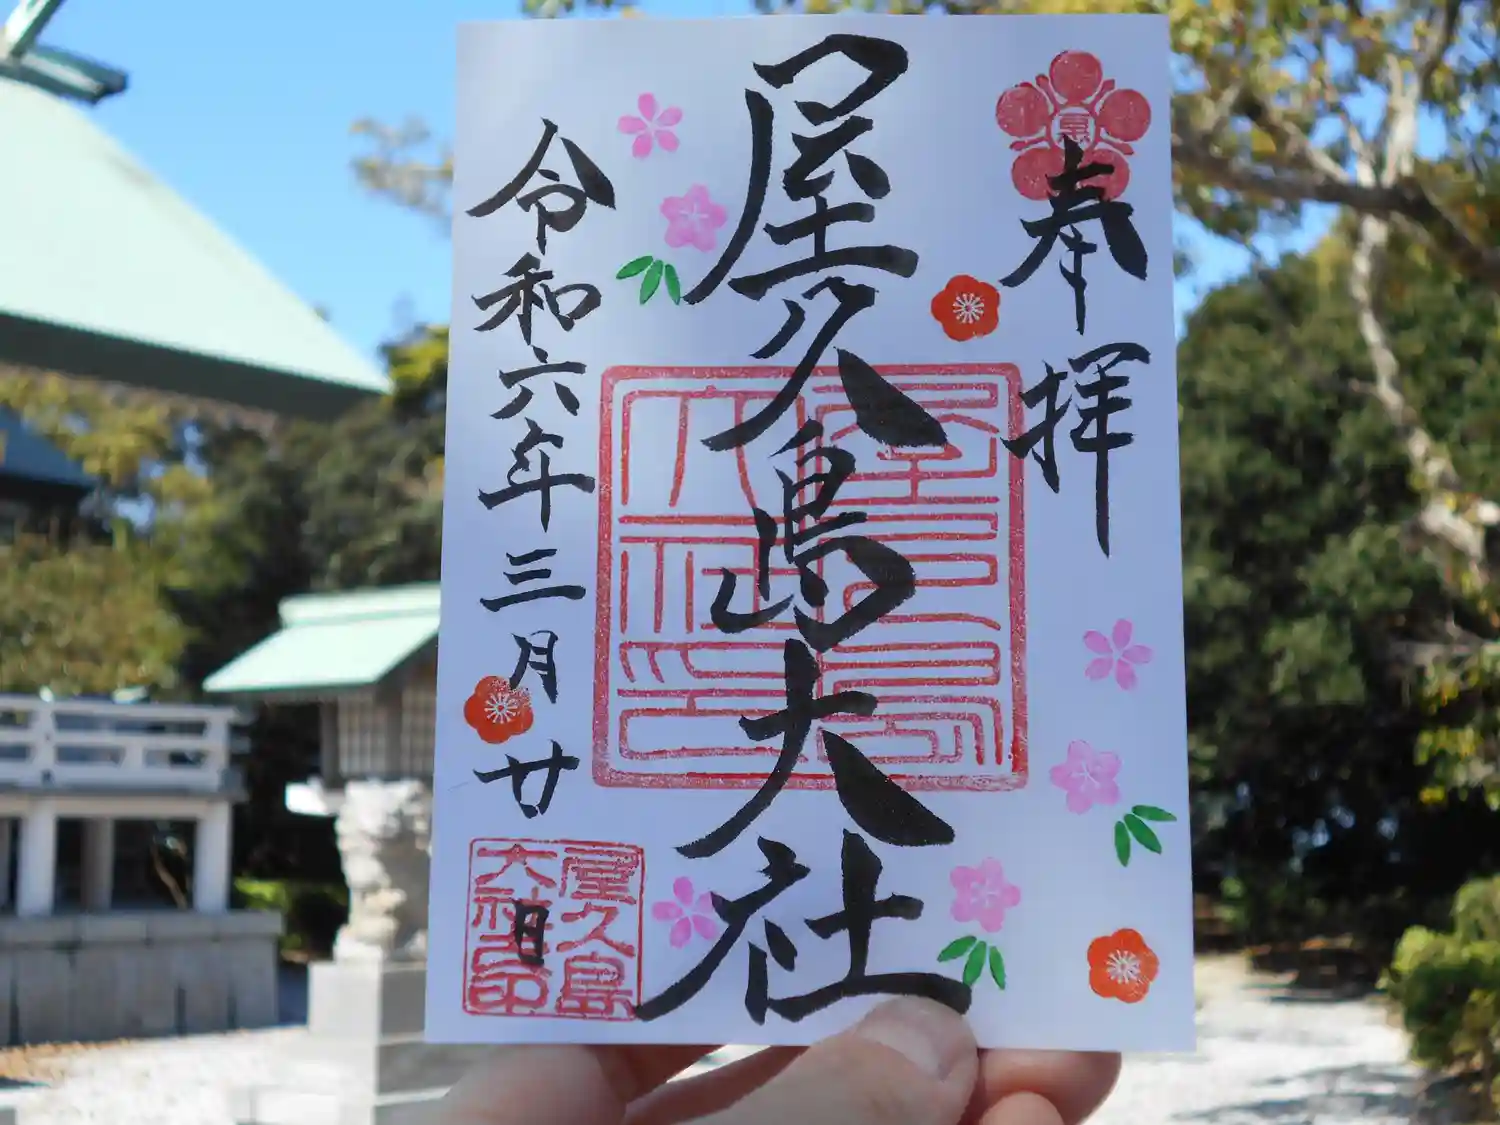 奉拝
屋久島大社
令和六年三月廿日
屋久島
大社之印